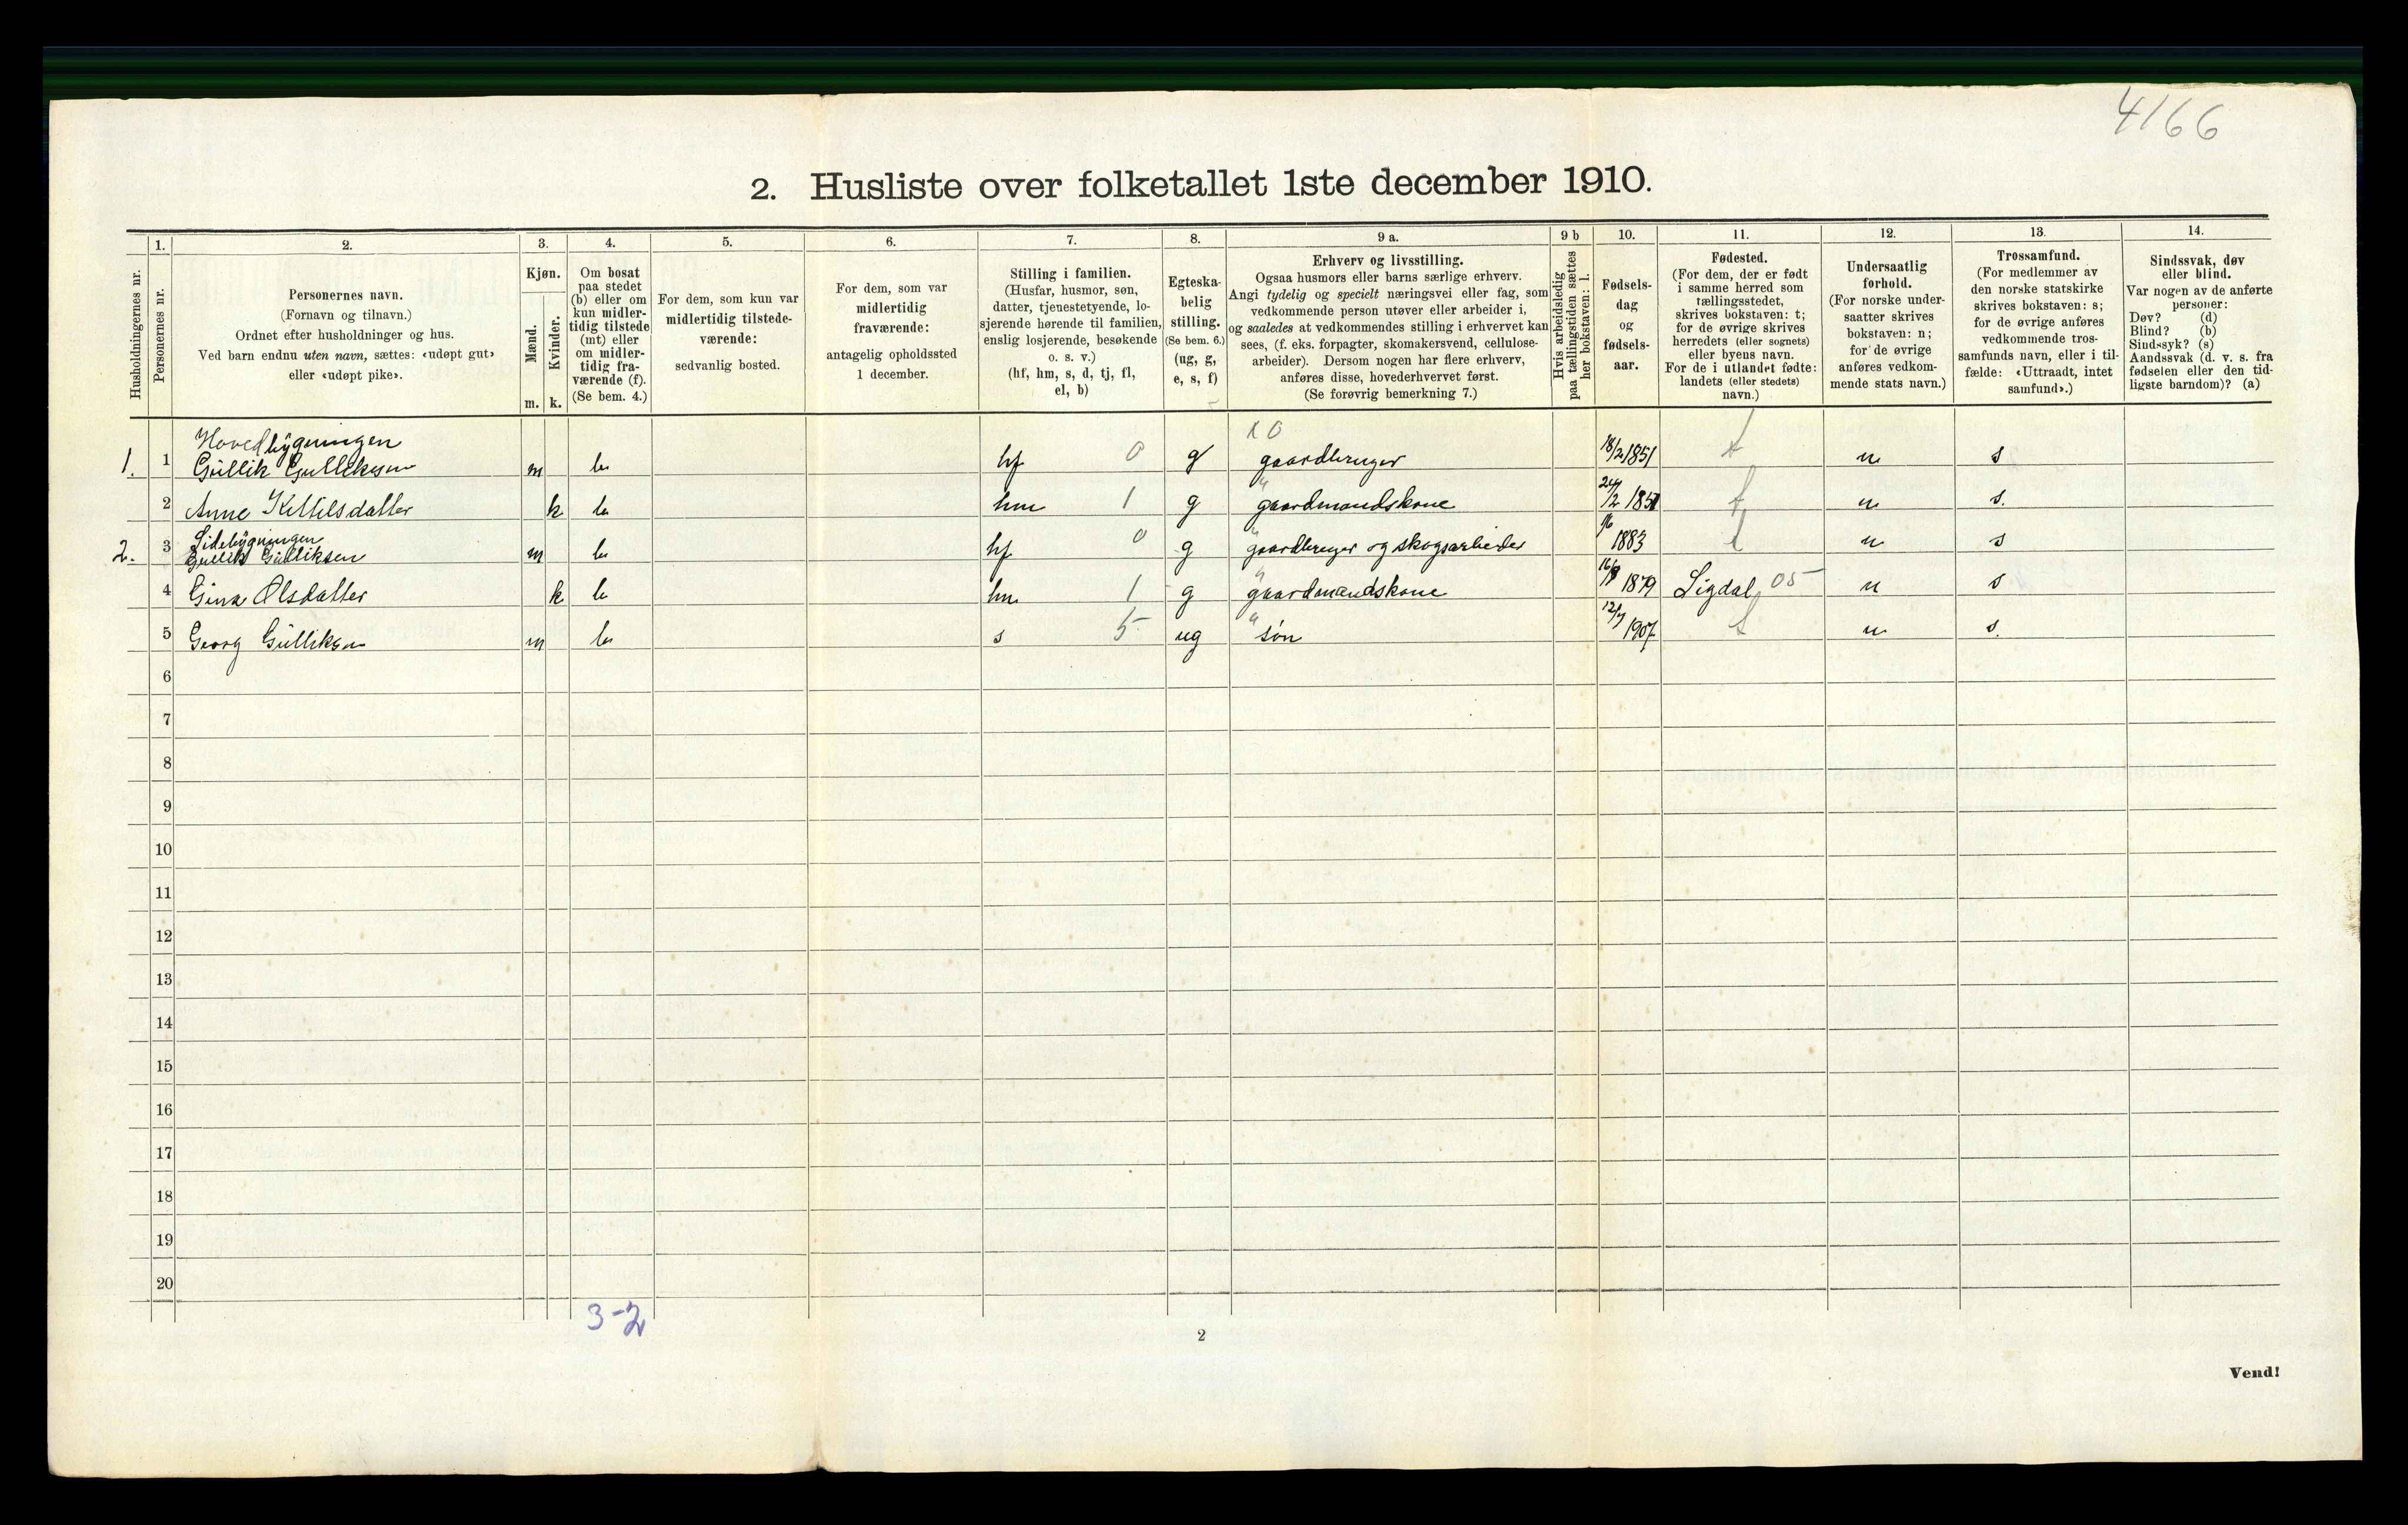 4166
2. Husliste over folketallet 1ste december 1910.
Husholdningernes nr.
1.
Personernes nr.
2.
Personernes navn.
(Fornavn og tilnavn.)
Ordnet efter husholdninger og hus.
Ved barn endnu uten navn, sættes: «udøpt gut»
eller «udøpt pike».
3.
Kjøn.
Mænd.
Kvinder.
m. k.
4.
Om bosat
paa stedet
(b) eller om
kun midler-
tidig tilstede
(mt) eller
om midler-
tidig fra-
værende (f).
(Se bem. 4.)
5.
For dem, som kun var
midlertidig tilstede-
værende:
sedvanlig bosted.
6.
For dem, som var
midlertidig
fraværende:
antagelig opholdssted
1 december.
7.
Stilling i familien.
(Husfar, husmor, søn,
datter, tjenestetyende, lo-
sjerende hørende til familien,
enslig losjerende, besøkende
o. s. v.)
(hf, hm, s, d, tj, fl,
el, b)
8.
Egteska-
belig
stilling.
(Se bem. 6.)
(ug, g,
e, s, f)
9 a.
Erhverv og livsstilling.
Ogsaa husmors eller barns særlige erhverv.
Angi tydelig og specielt næringsvei eller fag, som
vedkommende person utøver eller arbeider i,
og saaledes at vedkommendes stilling i erhvervet kan
sees, (f. eks. forpagter, skomakersvend, cellulose-
arbeider). Dersom nogen har flere erhverv,
anføres disse, hovederhvervet først.
(Se forøvrig bemerkning 7.)
9 b
Hvis arbeidsledig
paa tællingstiden sættes
her bokstaven: l.
10.
Fødsels-
dag
og
fødsels-
aar.
11.
Fødested.
(For dem, der er født
i samme herred som
tællingsstedet,
skrives bokstaven: t;
for de øvrige skrives
herredets (eller sognets)
eller byens navn.
For de i utlandet fødte:
landets (eller stedets)
navn.)
12.
Undersaatlig
forhold.
(For norske under-
saatter skrives
bokstaven: n;
for de øvrige
anføres vedkom-
mende stats navn.)
13.
Trossamfund.
(For medlemmer av
den norske statskirke
skrives bokstaven: s;
for de øvrige anføres
vedkommende tros-
samfunds navn, eller i til-
fælde: «Uttraadt, intet
samfund».)
14.
Sindssvak, døv
eller blind.
Var nogen av de anførte
personer:
Døv? (d)
Blind? (b)
Sindssyk? (s)
Aandssvak (d. v. s. fra
fødselen eller den tid-
ligste barndom)? (a)
Hovedbygningen
1. 1 Gullik Gulliksen m b hf 0 g gaardbruger 18/2 1851 t n s
2 Anne Kittilsdatter k b hm 1 g gaardmandskone 1851 t n s.
Sidebygningen
2. 3 Gullik Gulliksen m b hf 0 g gaardbruger og skogsarbeider 1883 t n s
4 Gina Olsdatter k b hm 1 g gaardmandskone 1879 Sigdal 05 n s
5 Georg Gulliksen m b s 5 ug søn 1907 t n s.
6
7
8
9
10
11
12
13
14
15
16
17
18
19
20
3-2
2
Vend!